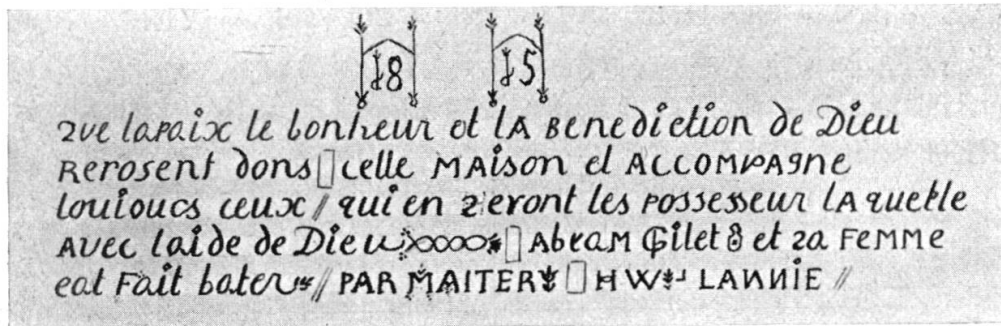 18 15
Que lapaix le bonheur et lA Benediction de Dieu
Reposent dons celle MAison et ACCOMPAgne
toutoucs ceux // qui en Seront les possesseur lA quelle
AVEC laide de Dieu AbraM Gilet et sa FeMME
eat Fait bater // PAR MAITER HW LANNIE //